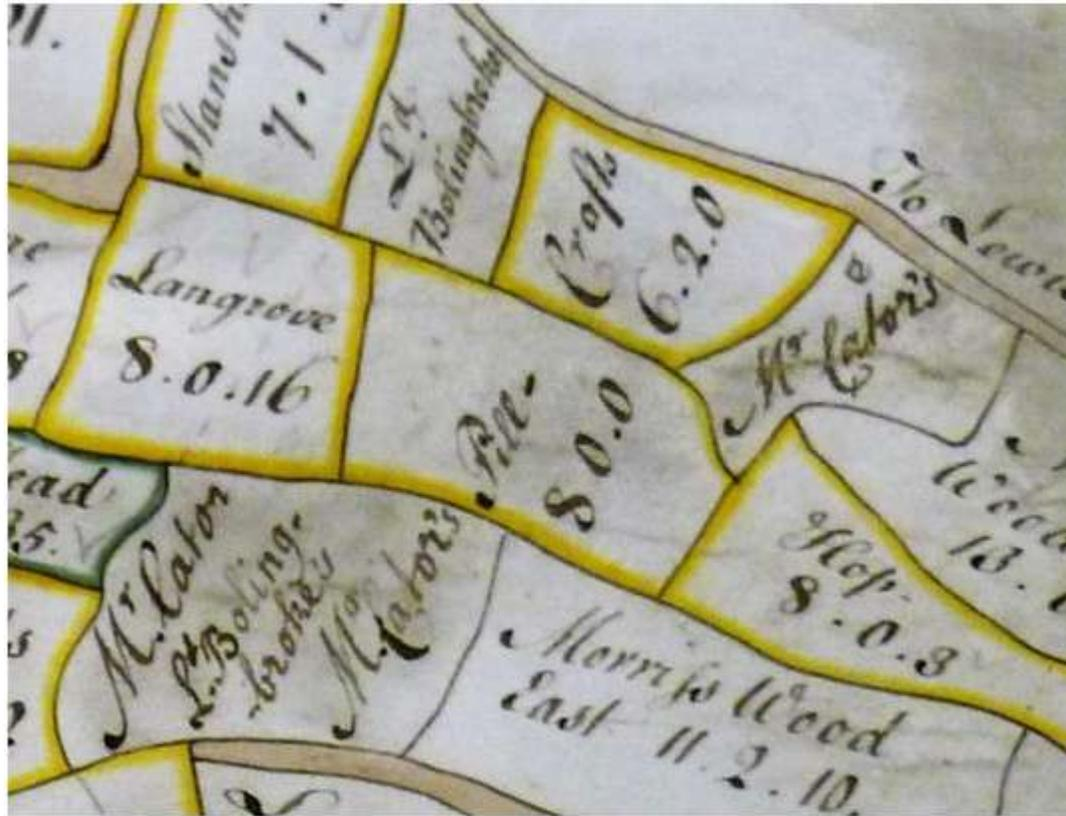 Stansh
7.1.
Ld
Bolingbroke
Crofts
6.2.0
To Lewis
Langrove
8.0.16
Mr Cator's
Pill-
8 0.0
ead
35.
Mr. Cator
Ld. Boling-
-broke's
Mr. Cator's
Hop-
8.0.3
13.
Morriss Wood
East 11.2.10.